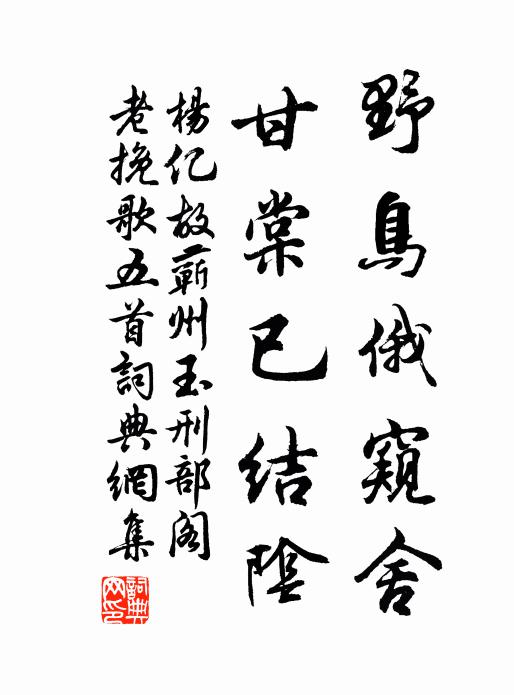 野鳥俄窺舍
甘棠已結陰
楊亿故蘄州玉刑部阁
老挽歌五首詞典網集
詞典网印